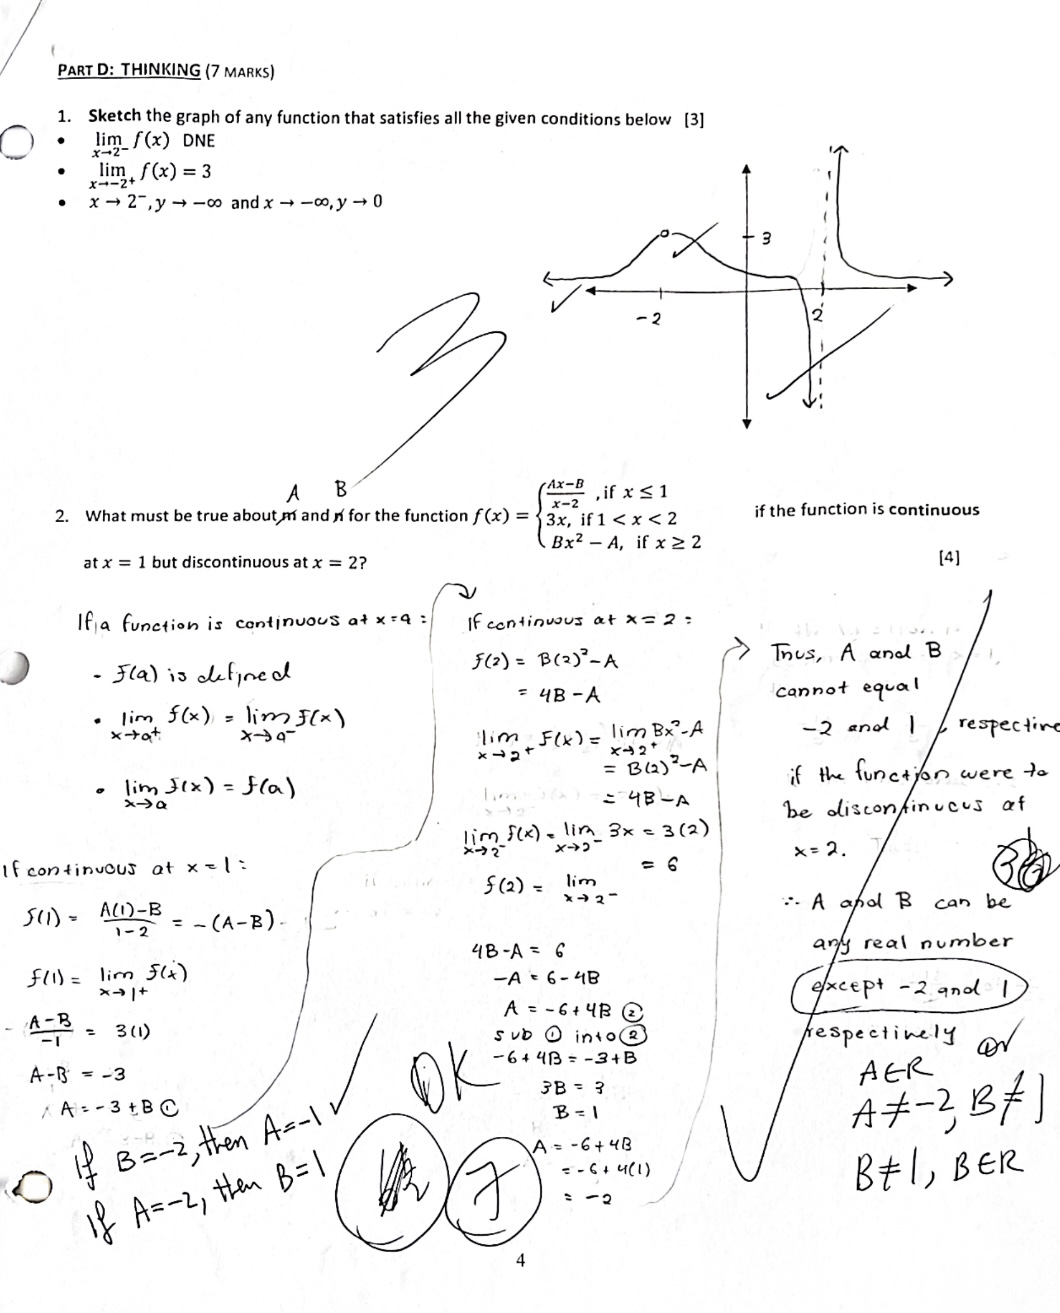 PART D: THINKING (7 MARKS)
1. Sketch the graph of any function that satisfies all the given conditions below [3]
• lim x→2⁻ f(x) DNE
• lim x→−2⁺ f(x) = 3
• x → 2⁻, y → −∞ and x → −∞, y → 0
3
-2
2
3
A B
2. What must be true about m and n for the function f(x) = { (Ax−B)/(x−2) , if x ≤ 1
3x, if 1 < x < 2
Bx² − A, if x ≥ 2
if the function is continuous
at x = 1 but discontinuous at x = 2?
[4]
If a function is continuous at x=a :
- f(a) is defined
• lim x→a⁺ f(x) = lim x→a⁻ f(x)
• lim x→a f(x) = f(a)
If continuous at x=1:
f(1) = (A(1)-B)/(1-2) = -(A-B)
f(1) = lim x→1+ f(x)
(A-B)/-1 = 3(1)
A-B = -3
A = -3+B ①
If B=-2, then A=-1
if A=-2, then B=1
OK
7
If continuous at x=2:
f(2) = B(2)²-A
= 4B-A
lim x→2⁺ f(x) = lim x→2⁺ Bx²-A
= B(2)²-A
= 4B-A
lim x→2⁻ f(x) = lim x→2⁻ 3x = 3(2)
= 6
f(2) = lim x→2⁻
4B-A = 6
-A = 6-4B
A = -6+4B ②
sub ① into ②
-6+4B = -3+B
3B = 3
B = 1
A = -6+4B
= -6+4(1)
= -2
Thus, A and B
cannot equal
-2 and 1, respective
if the function were to
be discontinuous at
x=2.
∴ A and B can be
any real number
except -2 and 1
respectively
or
AER
A≠-2, B≠1
B≠1, BER
4